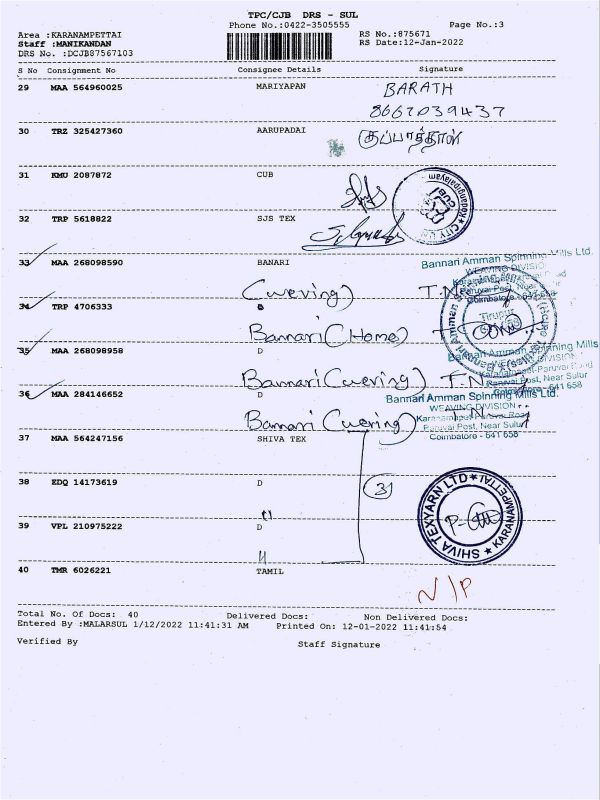 TPC/CJB DRS - SUL
Phone No.:0422-3505555
Page No.:3
Area :KARANAMPETTAI
RS No.:875671
Staff :MANIKANDAN
RS Date:12-Jan-2022
DRS No. :DCJB87567103
S No Consignment No Consignee Details Signature
29 MAA 564960025 MARIYAPAN BARATH
8667039437
30 TRZ 325427360 AARUPADAI குப்பாத்தாள்
31 KMU 2087872 CUB
CUB
CITY
32 TRP 5618822 SJS TEX
33 MAA 268098590 BANARI
Bannari Amman Spinning Mills Ltd.
WEAVING DIVISION
Paruvai Post, Near
Coimbatore - 641 658
(wering) T.N
34 TRP 4706333
Tirupur
Bannari (Home)
35 MAA 268098958 D
Bannari Amman Spinning Mills
WEAVING DIVISION
Karanampet-Paruvai Road
Paruvai Post, Near Sulur
Coimbatore - 641 658
Bannari (wering) T.N
36 MAA 284146652 D
Bannari Amman Spinning Mills Ltd.
WEAVING DIVISION
Karanampet-Paruvai Road
Paruvai Post, Near Sulur
Coimbatore - 641 658
Bannari (wering) T.N
37 MAA 564247156 SHIVA TEX
38 EDQ 14173619 D
31
SHIVA TEXYARN LTD
KARANAMPETTAI
39 VPL 210975222 D
40 TMR 6026221 TAMIL
N/P
Total No. Of Docs: 40 Delivered Docs: Non Delivered Docs:
Entered By :MALARSUL 1/12/2022 11:41:31 AM Printed On: 12-01-2022 11:41:54
Verified By Staff Signature